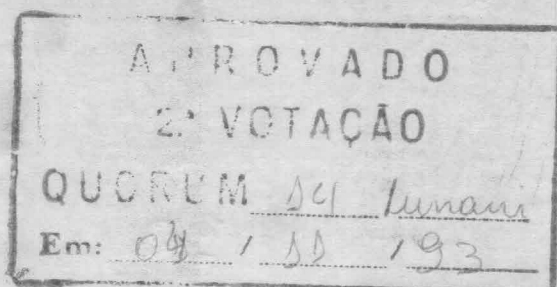 APROVADO
2.ª VOTAÇÃO
QUORUM 14
Em: 04 / 11 / 93